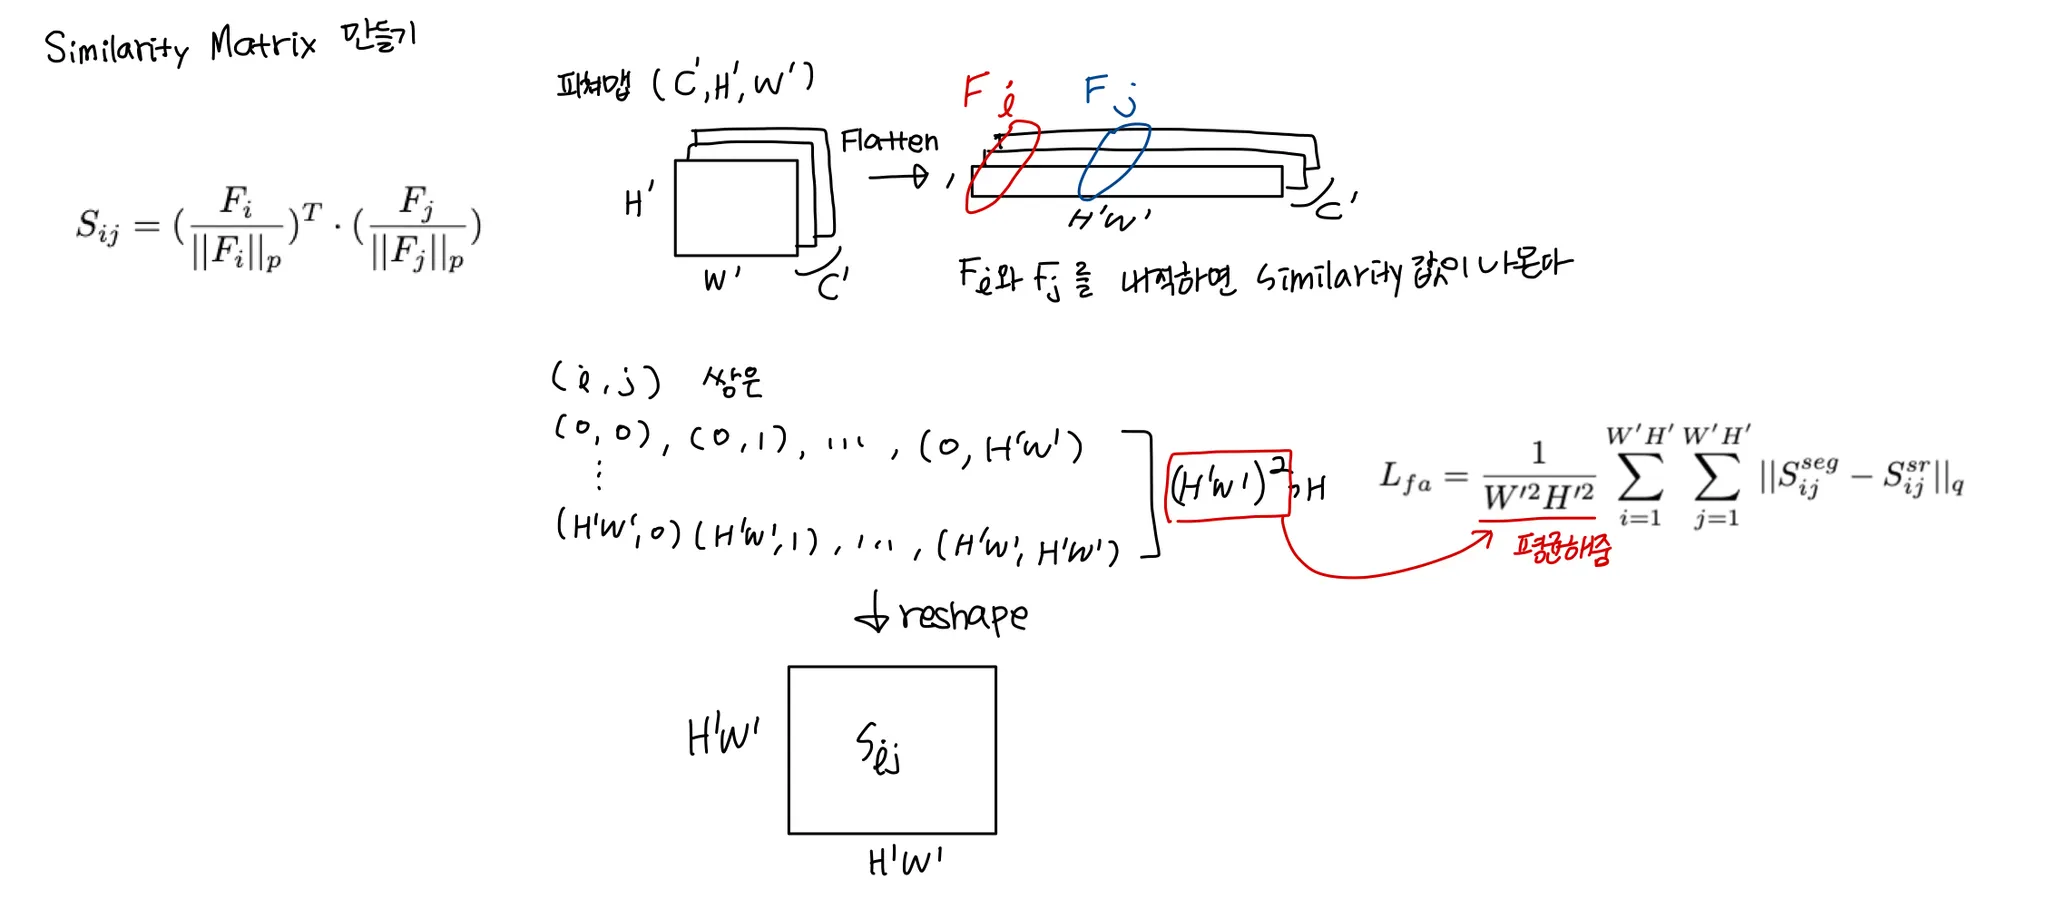 Similarity Matrix 만들기
피쳐맵 (C', H', W')
F i
F j
Flatten
H'
W'
C'
H'W'
C'
S_{ij} = (\frac{F_i}{||F_i||_p})^T · (\frac{F_j}{||F_j||_p})
Fi와 Fj를 내적하면 Similarity 값이 나온다
(i, j) 쌍은
(0, 0), (0, 1), ... , (0, H'W')
⋮
(H'W', 0) (H'W', 1), ... , (H'W', H'W')
(H'W')² 개
L_{fa} = \frac{1}{W'^2 H'^2} \sum_{i=1}^{W'H'} \sum_{j=1}^{W'H'} ||S_{ij}^{seg} - S_{ij}^{sr}||_q
평균해줌
↓ reshape
H'W'
Sij
H'W'